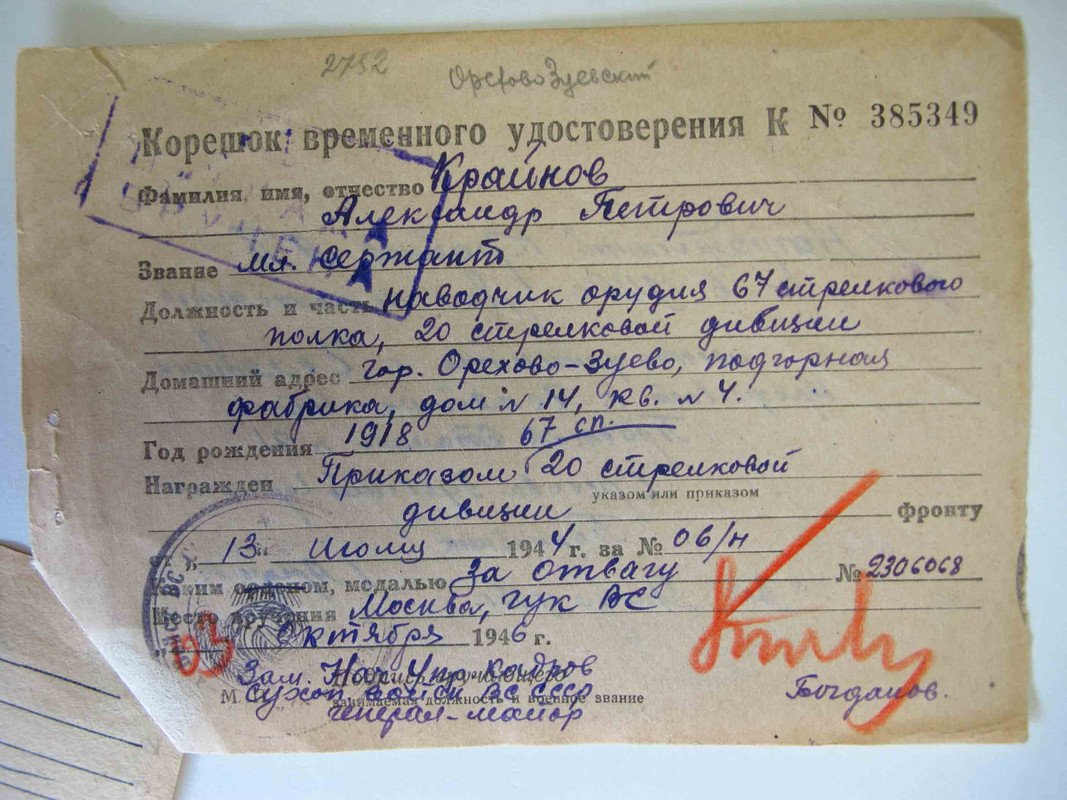 2752
Орехово Зуевский
Корешок временного удостоверения К № 385349
Фамилия, имя, отчество Крайнов
Александр Петрович
Звание мл. сержант
Должность и часть наводчик орудия 67 стрелкового
полка, 20 стрелковой дивизии
Домашний адрес гор. Орехово-Зуево, подгорная
фабрика, дом № 14, кв. № 4.
Год рождения 1918 67 сп.
Награжден Приказом 20 стрелковой
указом или приказом
дивизии фронту
„ 13 “ 1944 г. за № 06/н
Каким орденом, медалью За отвагу № 2306068
Место вручения Москва, ГУК ВС
03 Октября 1946 г.
Зам. Нач Упр кадров
Сухоп войск ВС СССР
М. занимаемая должность и военное звание
генерал-майор Богданов.